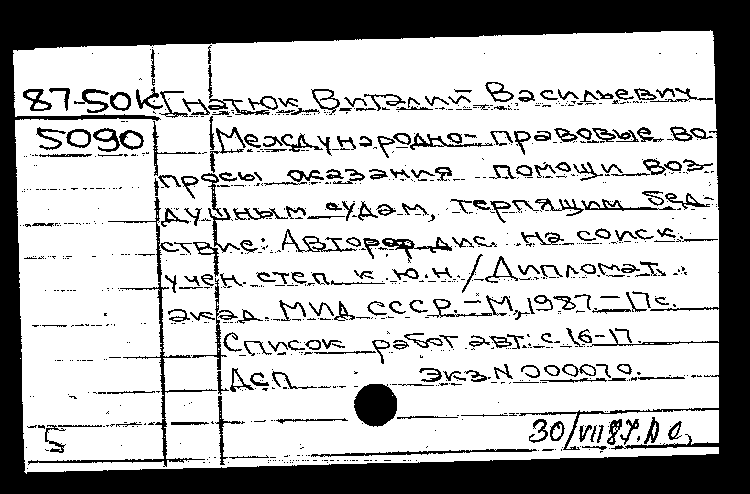 87-50К Гнатюк, Виталий Васильевич
5090 Международно-правовые во-
просы оказания помощи воз-
душным судам, терпящим бед-
ствие: Автореф. дис. на соиск.
учен. степ. к.ю.н./Дипломат.
акад. МИД СССР.-М, 1987.-17с.
Список работ авт.: с. 16-17
ДСП Экз. N 000070.
5 30/VII 87.